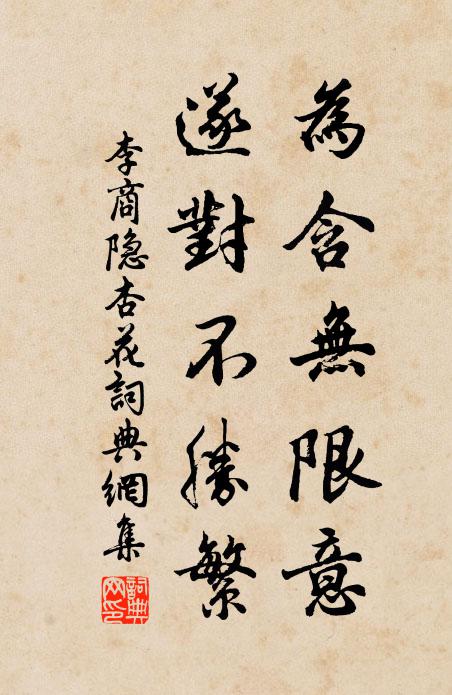 為含無限意
遂對不勝繁
李商隐杏花詞典網集
詞典
网印